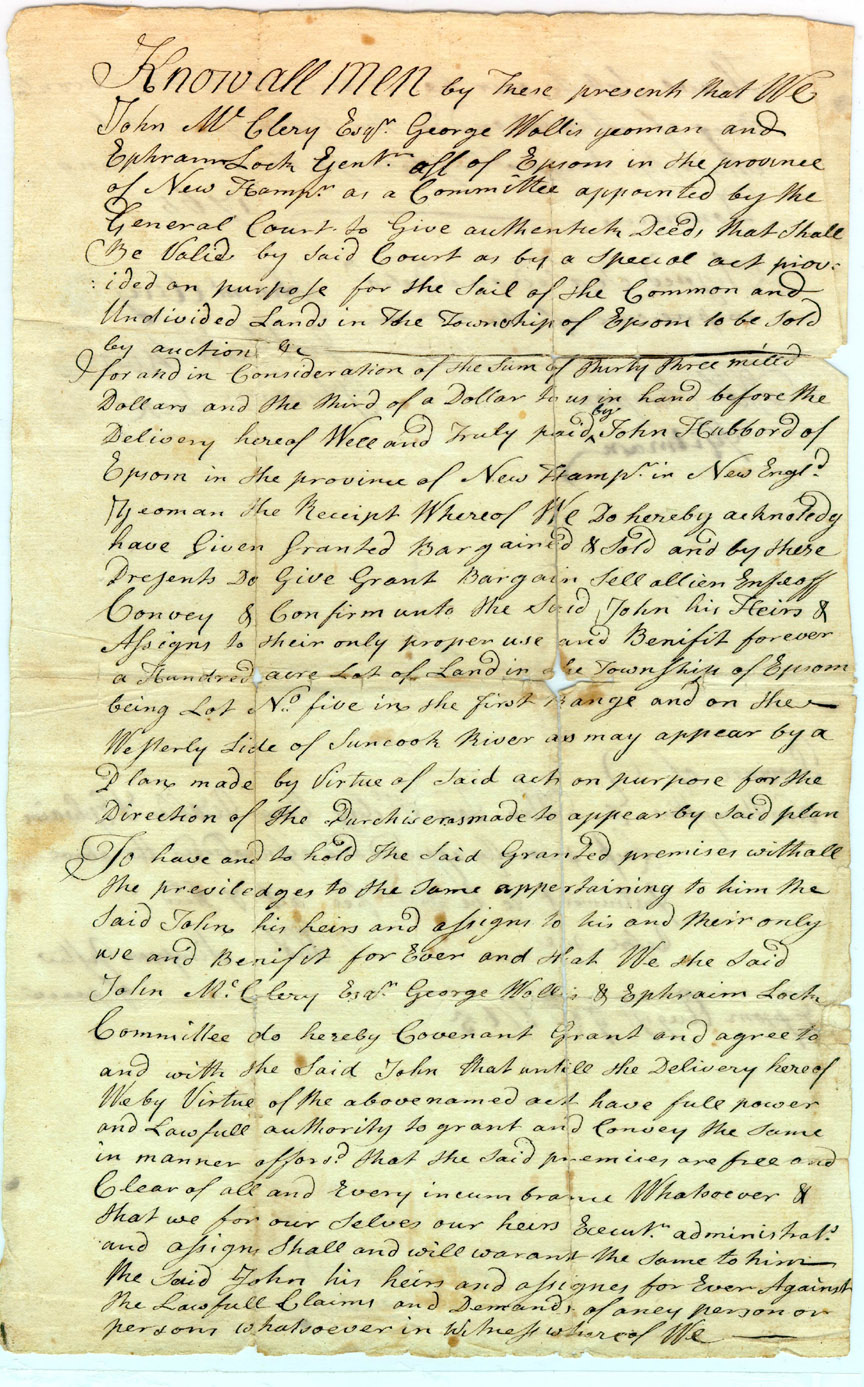 Know all men by These presents that We
John Mc Clery Esqr. George Wallis yeoman and
Ephraim Lock Gentn. all of Epsom in the province
of New Hampr. as a Committee appointed by the
General Court to Give authentick Deeds that Shall
Be Valid by Said Court as by a Special act prov:
:ided on purpose for the Sail of the Common and
Undivided Lands in The Township of Epsom to be Sold
by auction &c
for and in Consideration of the Sum of Thirty Three milled
Dollars and the third of a Dollar to us in hand before the
Delivery hereof Well and Truly paid by John Hubbord of
Epsom in the province of New Hampr. in New Engld.
Yeoman the Receipt Whereof We Do hereby acknoledg
have Given Granted Bargained & Sold and by these
Presents Do Give Grant Bargain Sell allien Enfeoff
Convey & Confirm unto the Said John his Heirs &
Assigns to their only proper use and Benifit forever
a Hundred acre Lot of Land in the Township of Epsom
being Lot No. five in the first Range and on the
Westerly Side of Suncook River as may appear by a
Plan made by Virtue of Said act on purpose for the
Direction of the Purchisers as made to appear by Said plan
To have and to hold The Said Granted premises with all
the previledges to the Same appertaining to him the
Said John his heirs and assigns to his and their only
use and Benifit for Ever and that We the Said
John Mc. Clery Esqr. George Wallis & Ephraim Lock
Committee do hereby Covenant Grant and agree to
and with the Said John that untill the Delivery hereof
We by Virtue of the above named act have full power
and Lawfull authority to grant and Convey the Same
in manner affors.d that the Said premises are free and
Clear of all and Every incumbrance Whatsoever &
that we for our Selves our heirs Execut.rs administrat.s
and assigns Shall and will warant the Same to him
the Said John his heirs and assignes for Ever Against
the Lawfull Claims and Demands of aney person or
persons whatsoever in Witness whereof We